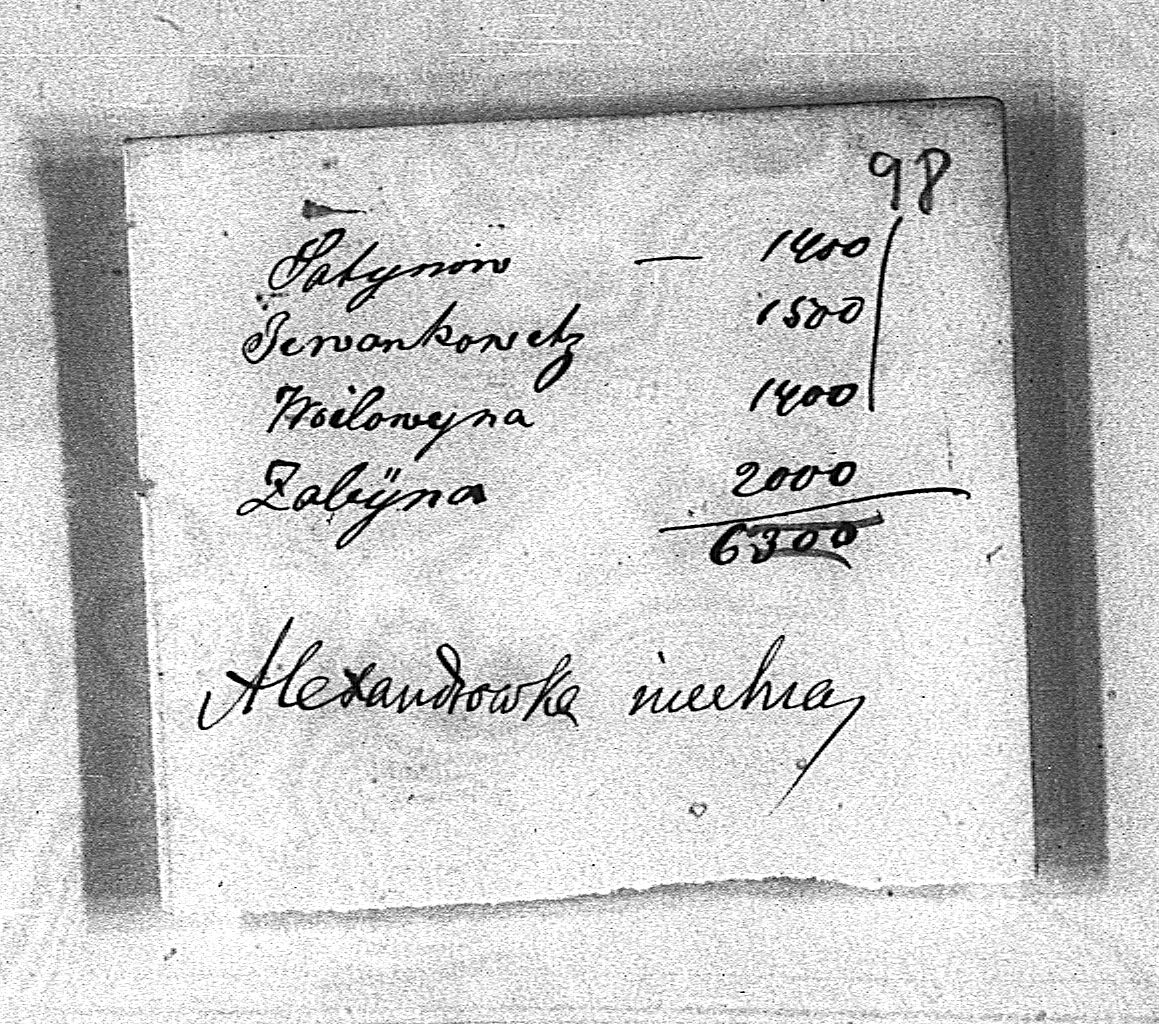 98
Satynow — 1400
Iwankowetz 1500
Woilowyna 1400
Zabÿna 2000
6300
Alexandrowka